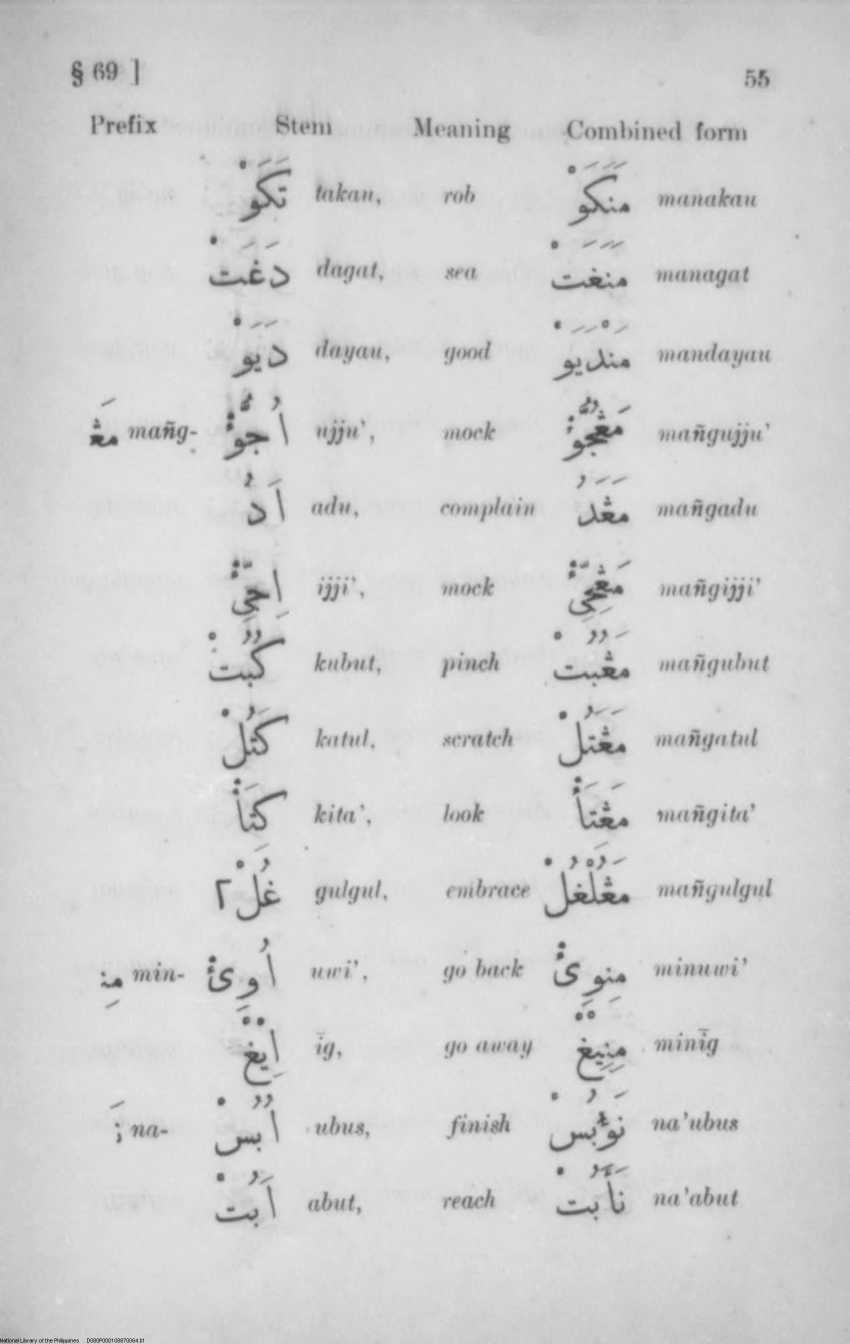 § 69 ]  55
Prefix Stem Meaning Combined form
تَكَوْ takau, rob مَنَكَوْ manakau
دَغَتْ dagat, sea مَنَغَتْ managat
دَيَوْ dayau, good مَنْدَيَوْ mandayau
مَڠ mañg- اُجُّؤْ ujju', mock مَڠُجُّؤْ mañgujju'
اَدُ adu, complain مَڠَدُ mañgadu
اِجِّئْ ijji', mock مَڠِجِّئْ mañgijji'
كُبُتْ kubut, pinch مَڠُبُتْ mañgubut
كَتُلْ katul, scratch مَڠَتُلْ mañgatul
كِتَأْ kita', look مَڠِتَأْ mañgita'
غُلْ٢ gulgul, embrace مَڠُلْغُلْ mañgulgul
مِن min- اُوِئْ uwi', go back مِنُوِئْ minuwi'
اِيغْ īg, go away مِنِيغْ minīg
نَ na- اُبُسْ ubus, finish نَؤُبُسْ na'ubus
اَبُتْ abut, reach نَأَبُتْ na'abut
National Library of the Philippines